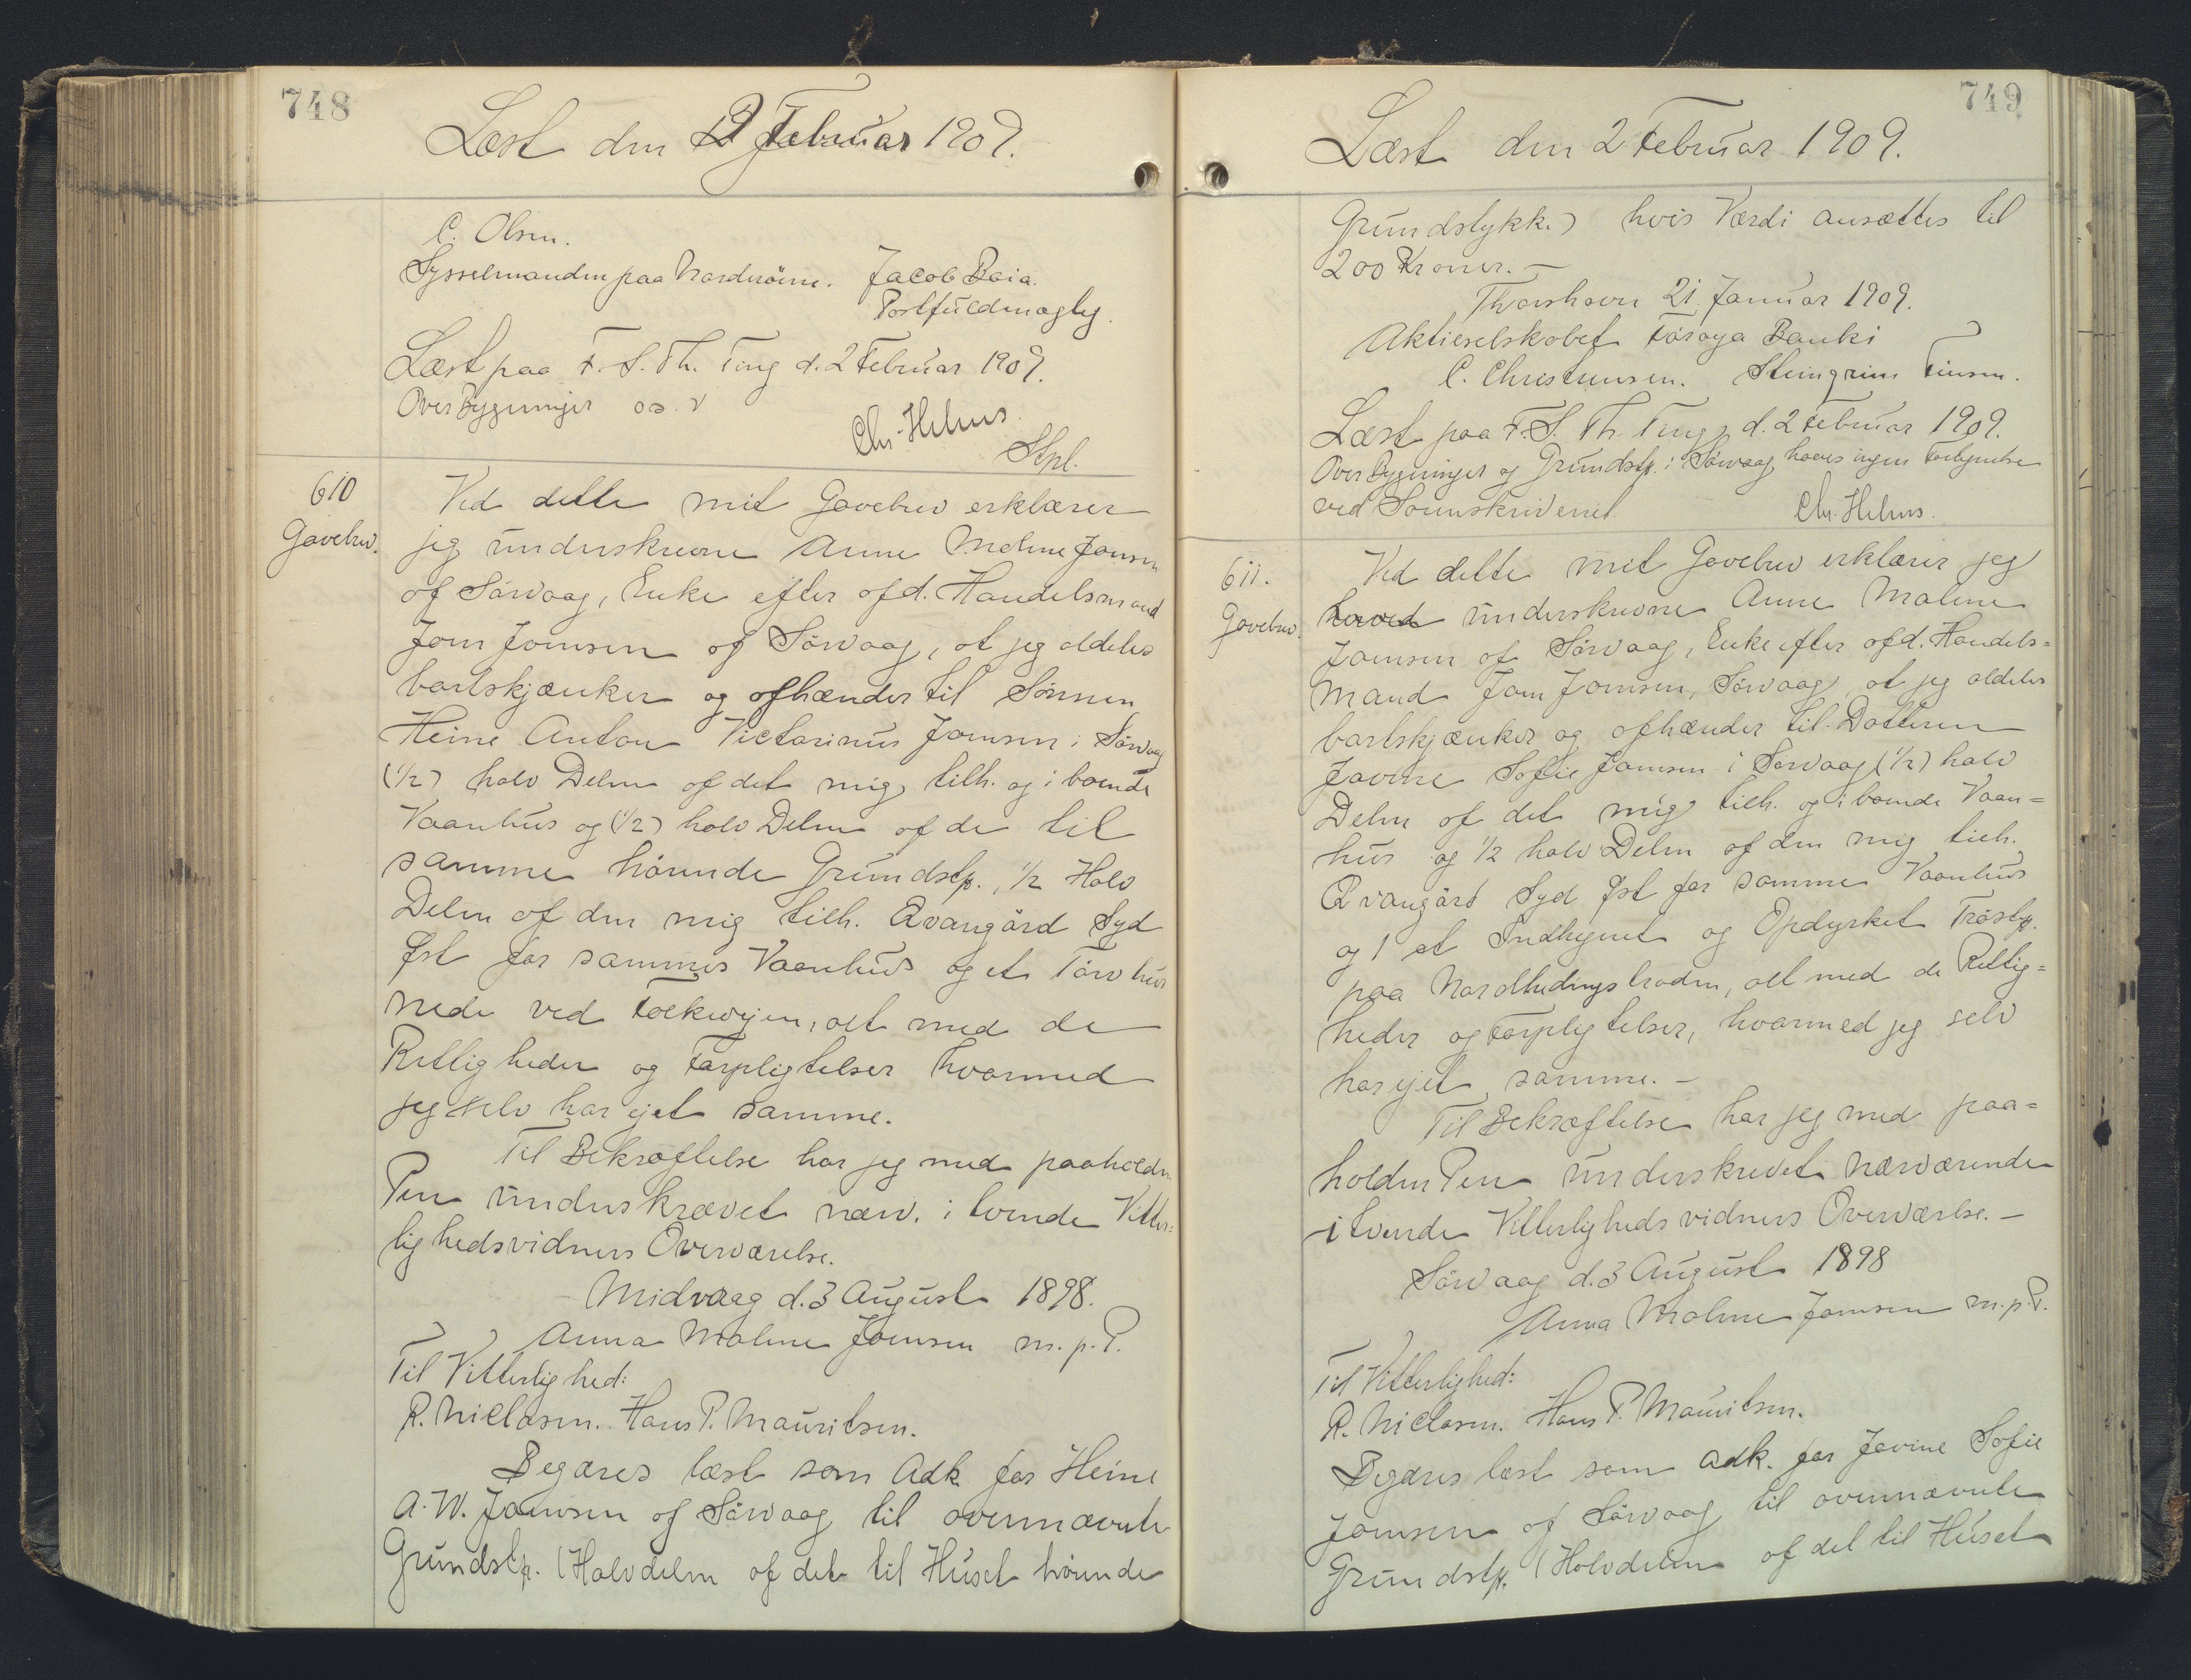 748
Læst den 2 Februar 1909.
C. Olsen.
Sysselmanden paa Norderöerne. Jacob Baia.
Postfuldmægtig.
Læst paa F. S. Th. Ting d. 2 Februar 1909.
Over Bygninger os. v
Chr. Helms.
Stpl.
610
Gavebrev.
Ved dette mit Gavebrev erklærer
jeg underskrevne Anne Malene Joensen
af Sörvaag, Enke efter afd. Handelsmand
Joen Joensen af Sörvaag, at jeg aldeles
bortskjænker og afhænder til Sönnen
Heine Anton Victorinus Joensen i Sörvaag
(1/2) halv Delen af det mig tilh. og iboende
Vaanhus og (1/2) halv Delen af de til
samme hörende Grundstp., 1/2 Halv
Delen af den mig tilh. Qvangård Syd
Øst for sammes Vaanhus og et Törvhus
nede ved Folkevejen, alt med de
Rettigheder og Forpligtelser hvormed
jeg selv har ejet samme.
Til Bekræftelse har jeg med paaholden
Pen underskrevet nærv. i tvende Vitter-
lighedsvidners Overværelse.
Midvaag d. 3 August 1898.
Anna Malene Joensen m. p. P.
Til Vitterlighed:
R. Niclasen. Hans P. Mauritsen.
Begæres læst som Adk for Heine
A. W. Joensen af Sörvaag til ovennævnte
Grundstp. (Halvdelen af det til Huset hörende
749
Læst den 2 Februar 1909.
Grundstykke) hvis Værdi ansættes til
200 Kroner. -
Thorshavn 21. Januar 1909.
Aktieselskabet Föroya Banki
C. Christensen. Steingrim Finsen.
Læst paa F. S. Th. Ting d. 2 Februar 1909.
Over Bygninger og Grundstp. i Sörvaag haves ingen
ved Sorenskriveriet
Chr. Helms.
611.
Gavebrev.
Ved dette mit Gavebrev erklærer jeg
herved underskrevne Anne Malene
Joensen af Sörvaag, Enke efter afd. Handels=
mand Joen Joensen, Sörvaag, at jeg aldeles
bortskjænker og afhænder til Datteren
Jovine Sofie Joensen i Sørvaag (1/2) halv
Delen af det mig tilh. og iboende Vaan=
hus og 1/2 halv Delen af den mig tilh.
Qvangård Syd Øst for samme Vaanhus
og 1 et Indhegnet og Opdyrket Tröstp.
paa Nordhedingstraden, alt med de Rettig=
heder og Forpligtelser, hvormed jeg selv
har ejet samme. -
Til Bekræftelse har jeg med paa=
holden Pen underskrevet nærværende
i tvende Vitterlighedsvidners Overværlse. -
Sörvaag d. 3 August 1898
Anna Malene Joensen m.p.P.
Til Vitterlighed:
R. Niclasen. Hans P. Mauritsen.
Begæres læst som Adk. for Jovine Sofie
Joensen af Sörvaag til ovennævnte
Grundstp. (Halvdelen af det til Huset